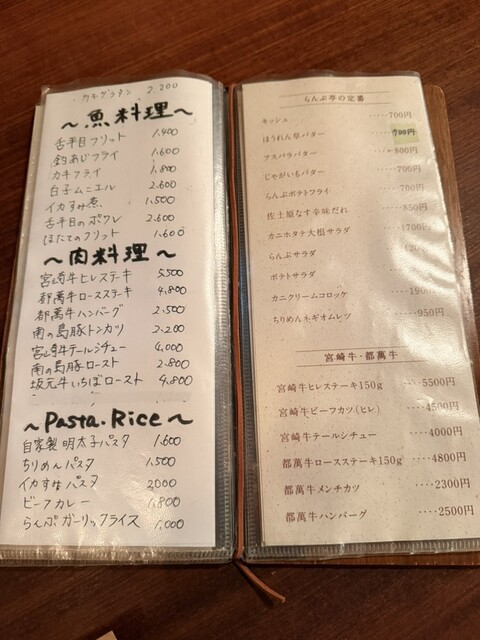 カキグラタン 2.200
～魚料理～
舌平目フリット 1.400
釣あじフライ 1.600
カキフライ 1.800
白子ムニエル 2.600
イカすみ煮 1.500
舌平目のポワレ 2.600
ほたてのフリット 1.600
～肉料理～
宮崎牛ヒレステーキ 5.500
都萬牛ロースステーキ 4.800
都萬牛ハンバーグ 2.500
南の島豚トンカツ 2.200
宮崎牛テールシチュー 4.000
南の島豚ロースト 2.800
坂元牛いちぼロースト 4.800
～Pasta.Rice～
自家製 明太子パスタ 1.600
ちりめんパスタ 1.500
イカすみパスタ 2000
ビーフカレー 1.800
らんぷガーリックライス 1.000
らんぷ亭の定番
キッシュ ････700円
ほうれん草バター ････700円
アスパラバター ････800円
じゃがいもバター ････700円
らんぷポテトフライ ････700円
佐土原なす辛味だれ ････850円
カニホタテ大根サラダ ････1700円
らんぷサラダ
ポテトサラダ
カニクリームコロッケ
ちりめんネギオムレツ ････950円
宮崎牛・都萬牛
宮崎牛ヒレステーキ150g ････5500円
宮崎牛ビーフカツ(ヒレ) ････4500円
宮崎牛テールシチュー ････4000円
都萬牛ロースステーキ150g ････4800円
都萬牛メンチカツ ････2300円
都萬牛ハンバーグ ････2500円